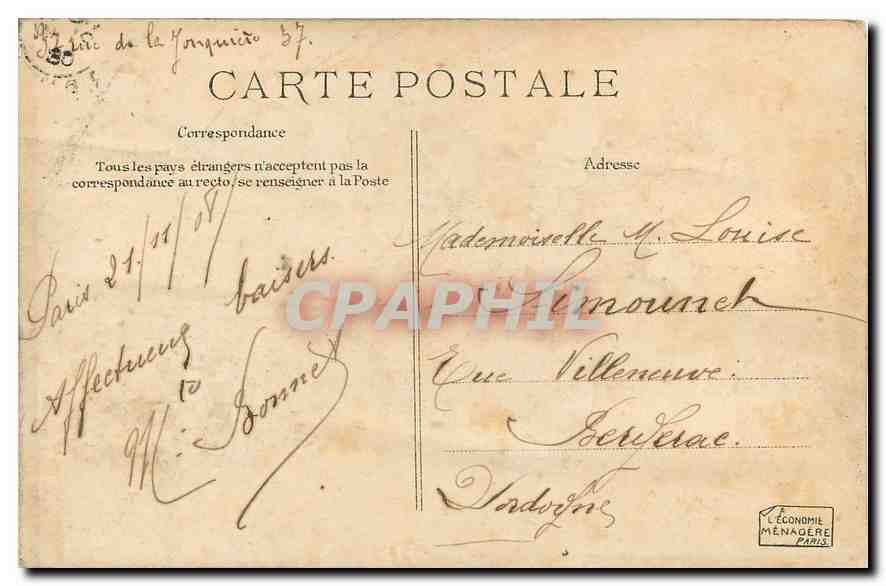 37 rue de la Jonquière 37.
CARTE POSTALE
Correspondance
Tous les pays étrangers n'acceptent pas la
correspondance au recto, se renseigner à la Poste
Paris 21/11/08/
Affectueux baisers.
M. Bonnet
Adresse
Mademoiselle M. Louise
Limounet
Rue Villeneuve.
Bergerac.
Dordogne
CPAPHIL
A
L'ÉCONOMIE
MÉNAGÈRE
PARIS.